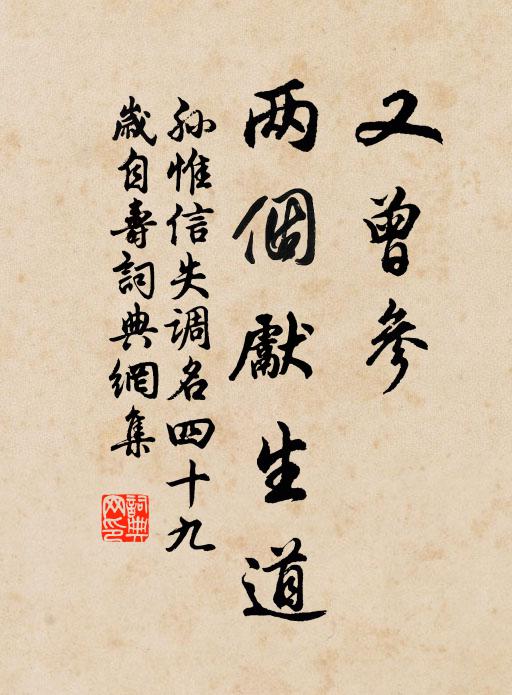 又曾參
两個獻生道
孙惟信失调名四十九
歲自壽詞典網集
詞典网印